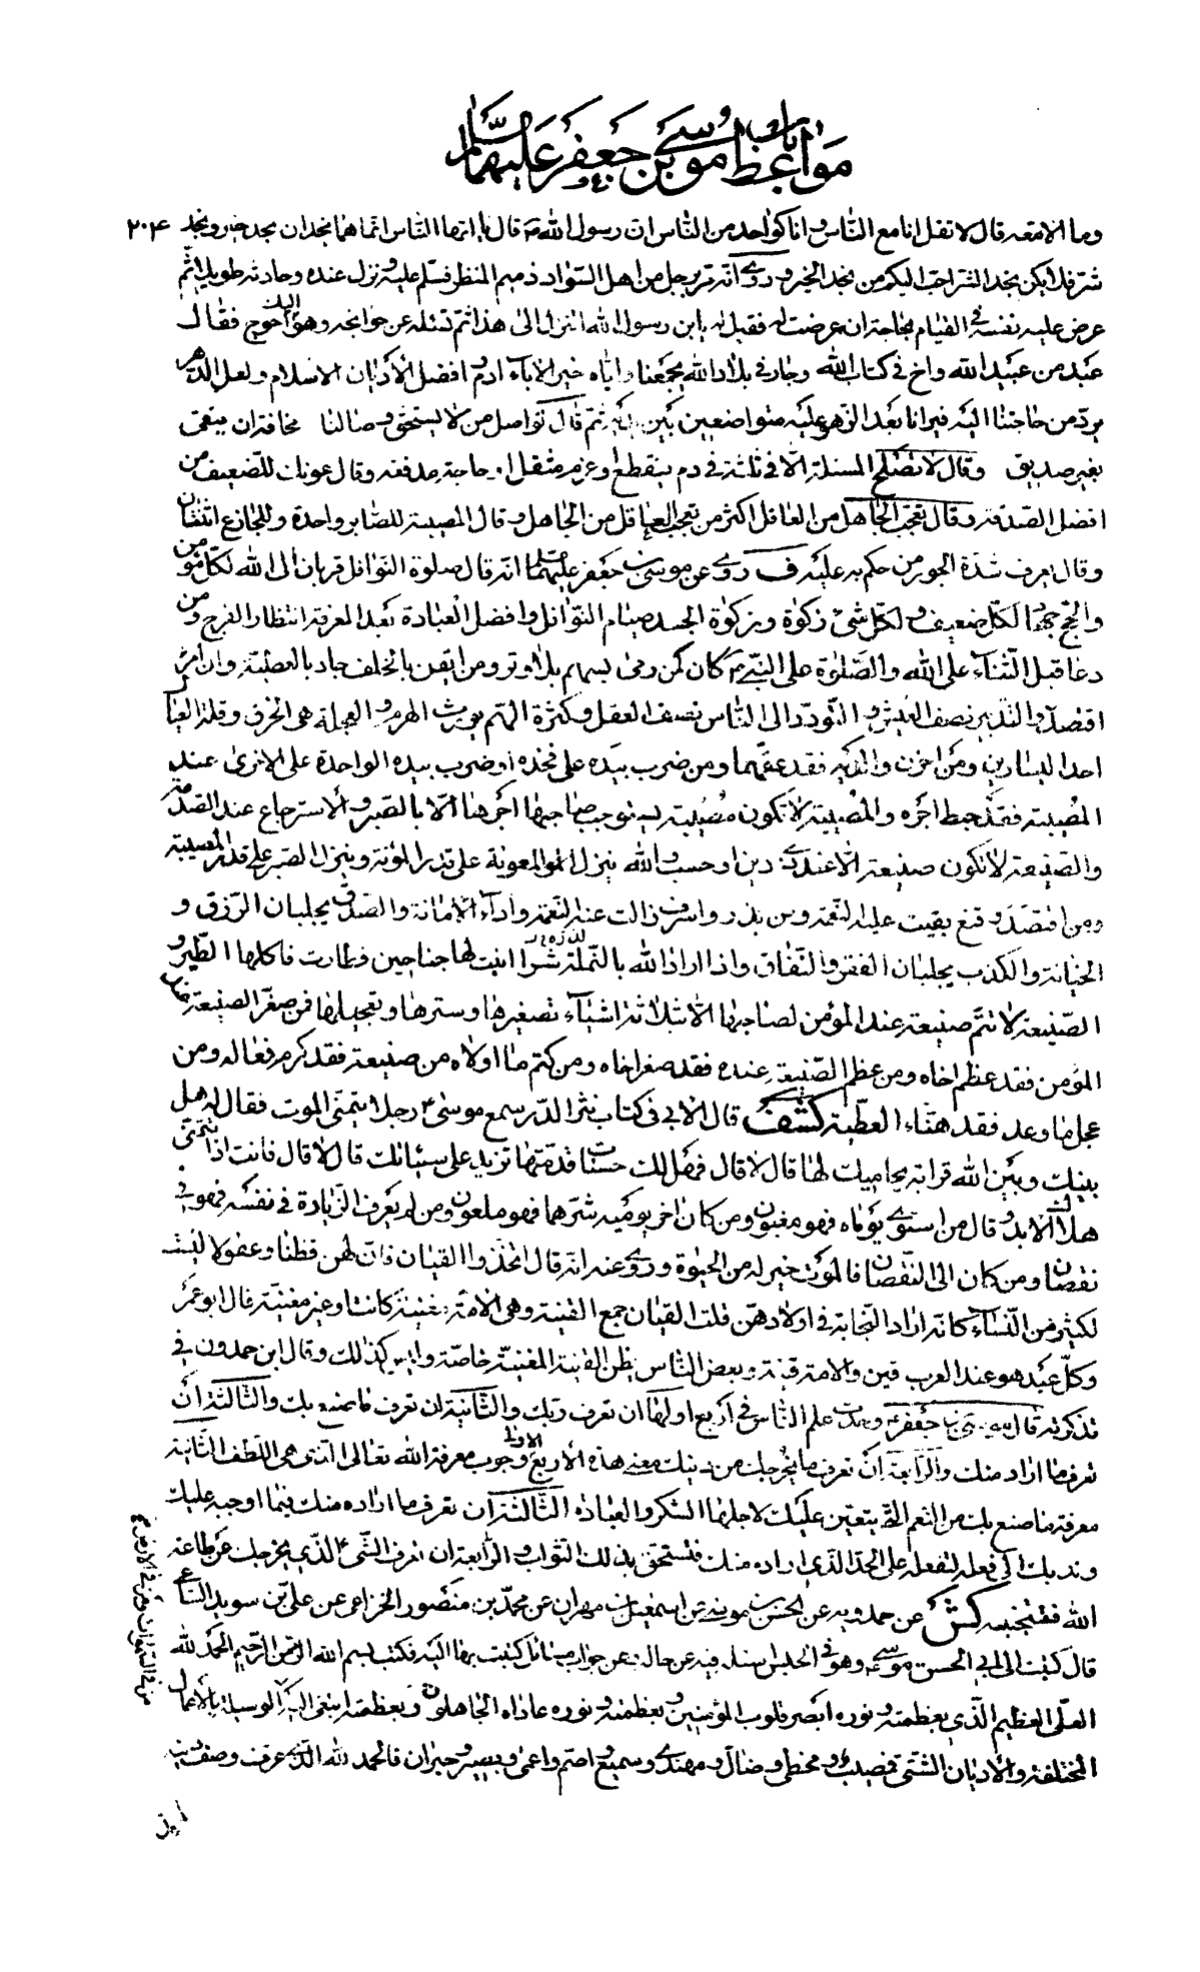 باب مواعظ موسى بن جعفر عليهما السلام
وما الامعة قال لا تقل انا مع الناس وانا كواحد من الناس ان رسول الله ص قال يا ايها الناس انما هما نجدان نجد خير ونجد ٢٠٤
شر فلا يكن نجد الشر احب اليكم من نجد الخير وروى انه مر برجل من اهل السواد ذميم المنظر فسلم عليه ونزل عنده وحادثه طويلا ثم
عرض عليه نفسه في القيام بحاجة ان عرضت له فقيل له يا ابن رسول الله اتنزل الى هذا ثم تسئله عن حوائجه وهو اليك احوج فقال
عبد من عبيد الله واخ في كتاب الله وجار في بلاد الله يجمعنا واياه خير الاباء ادم وافضل الاديان الاسلام ولعل الدهر
يرد من حاجتنا اليه فيرانا بعد الزهو عليه متواضعين بين يديه ثم قال نواصل من لا يستحق وصالنا مخافة ان نبقى
بغير صديق وقال لا تصلح المسئلة الا في ثلثة في دم ينقطع او غرم مثقل او حاجة مدقعة وقال عونك للضعيف من
افضل الصدقة وقال تعجب الجاهل من العاقل اكثر من تعجب العاقل من الجاهل وقال المصيبة للصابر واحدة وللجازع اثنتان
وقال يعرف شدة الجور من حكم به عليه ف روى عن موسى بن جعفر عليهما السلم انه قال صلوة النوافل قربان الى الله لكل مؤمن
والحج جهاد لكل ضعيف ولكل شئ زكوة وزكوة الجسد صيام النوافل وافضل العبادة بعد المعرفة انتظار الفرج ومن
دعا قبل الثناء على الله والصلوة على النبي ص كان كمن رمى بسهم بلا وتر ومن ايقن بالخلف جاد بالعطية وان امرؤ
اقتصد والتدبير نصف العيش والتودد الى الناس نصف العقل وكثرة الهم يورث الهرم والعجلة هى الخرق وقلة العيال
احد اليسارين ومن احزن والديه فقد عقهما ومن ضرب بيده على فخذه او ضرب بيده الواحدة على الاخرى عند
المصيبة فقد حبط اجره والمصيبة لا تكون مصيبة يستوجب صاحبها اجرها الا بالصبر والاسترجاع عند الصدمة
والصنيعة لا تكون صنيعة الا عند ذي دين او حسب والله ينزل المعونة على قدر المؤنة وينزل الصبر على قدر المصيبة
ومن اقتصد وقنع بقيت عليه النعمة ومن بذر واسرف زالت عنه النعمة واداء الامانة والصدق يجلبان الرزق و
الخيانة والكذب يجلبان الفقر والنفاق واذا اراد الله بالنملة شرا انبت لها جناحين فطارت فاكلها الطير و
الصنيعة لا تتم صنيعة عند المؤمن لصاحبها الا بثلاثة اشياء تصغيرها وسترها وتعجيلها فمن صغر الصنيعة عند
المؤمن فقد عظم اخاه ومن عظم الصنيعة عنده فقد صغر اخاه ومن كتم ما اولاه من صنيعة فقد كرم فعاله ومن
عجل ما وعد فقد هنئ العطية كشف قال الآبي في كتاب نثر الدر سمع موسى ع رجلا يتمنى الموت فقال له هل
بينك وبين الله قرابة يحاميك لها قال لا قال فهل لك حسنات قدمتها تزيد على سيئاتك قال لا قال فانت اذا تتمنى
هلاك الابد وقال من استوى يوماه فهو مغبون ومن كان اخر يوميه شرهما فهو ملعون ومن لم يعرف الزيادة في نفسه فهو في
نقصان ومن كان الى النقصان فالموت خير له من الحيوة وروى عنه انه قال اتخذوا القيان فان لهن فطنا وعقولا ليست
لكثير من النساء كانه اراد النجابة في اولادهن قلت القيان جمع القينة وهى الامة مغنية كانت او غير مغنية قال ابو عمرو
وكل عبد هو عند العرب قين والامة قينة وبعض الناس يظن القينة المغنية خاصة وليس كذلك وقال ابن حمدون في
تذكرته قال موسى بن جعفر ع وجدت علم الناس في اربع اولها ان تعرف ربك والثانية ان تعرف ما صنع بك والثالثة ان
تعرف ما اراد منك والرابعة ان تعرف ما يخرجك من دينك معنى هذه الاربع الاولى وجوب معرفة الله تعالى التى هى اللطف الثانية
معرفة ما صنع بك من النعم التى يتعين عليك لاجلها الشكر والعبادة الثالثة ان تعرف ما اراده منك فيما اوجبه عليك
وندبك الى فعله لتفعله على الحد الذى اراده منك فتستحق بذلك الثواب والرابعة ان تعرف الشئ الذى يخرجك عن طاعة
الله فتجتنبه كش عن حمدويه عن الحسن بن موسى عن اسمعيل بن مهران عن محمد بن منصور الخزاعى عن على بن سويد السائى
قال كتبت الى ابي الحسن موسى ع وهو في الحبس اسئله فيه عن حاله وعن جواب مسائل كتبت بها اليه فكتب بسم الله الرحمن الرحيم الحمد لله
العلى العظيم الذى بعظمته ونوره ابصر قلوب المؤمنين وبعظمته ونوره عاداه الجاهلون وبعظمته ابتغى اليه الوسيلة بالاعمال
المختلفة والاديان الشتى فمصيب ومخطئ وضال ومهتد وسميع واصم واعمى وبصير وحيران فالحمد لله الذى عرف وصف دينه
من في السموات ومن في الارض